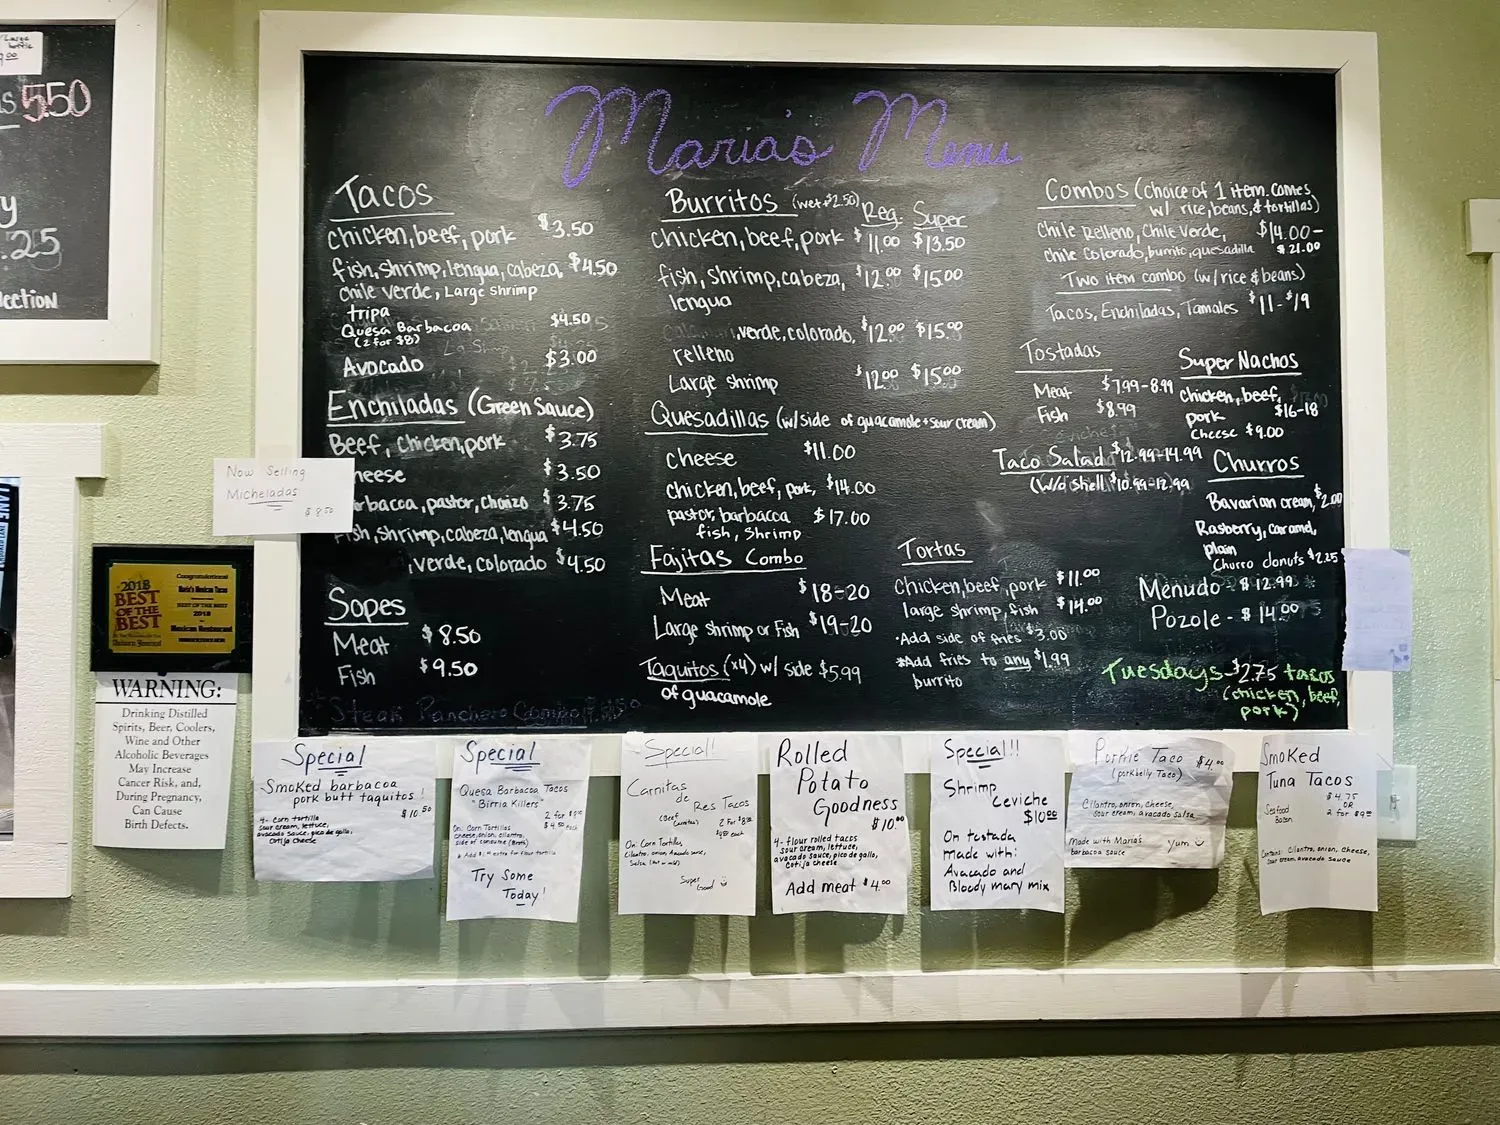 Large
bottle
550
y
.25
lection
Maria's Menu
Tacos
chicken, beef, pork $3.50
fish, shrimp, lengua, cabeza, $4.50
chile verde, Large shrimp
tripa
Quesa Barbacoa $4.50
(2 for $8)
Avocado $3.00
Enchiladas (Green Sauce)
Beef, chicken, pork $3.75
heese $3.50
arbacoa, pastor, chorizo $3.75
ish, shrimp, cabeza, lengua $4.50
, verde, colorado $4.50
Sopes
Meat $8.50
Fish $9.50
*Steak Panchero Combo
Burritos (wet+$2.50) Reg. Super
chicken, beef, pork $11.00 $13.50
fish, shrimp, cabeza, $12.00 $15.00
lengua
, verde, colorado, $12.00 $15.00
relleno
Large shrimp $12.00 $15.00
Quesadillas (w/side of guacamole + sour cream)
cheese $11.00
chicken, beef, pork, $14.00
pastor, barbacca $17.00
fish, shrimp
Fajitas Combo
Meat $18-20
Large shrimp or Fish $19-20
Taquitos (x4) w/ side $5.99
of guacamole
Combos (choice of 1 item. comes
w/ rice, beans, & tortillas)
Chile Relleno, Chile Verde, $14.00-
chile colorado, burrito, quesadilla $21.00
Two item combo (w/rice & beans)
Tacos, Enchiladas, Tamales $11-$19
Tostadas
Meat $7.99-8.99
Fish $8.99
Super Nachos
chicken, beef,
pork $16-18
Cheese $9.00
Taco Salad $12.99-14.99
(w/o shell $10.99-12.99
Churros
Bavarian cream, $2.00
Rasberry, caramel,
plain
Churro donuts $2.25
Tortas
Chicken, beef, pork $11.00
large shrimp, fish $14.00
•Add side of fries $3.00
*Add fries to any $1.99
burrito
Menudo - $12.99
Pozole - $14.00
Tuesdays-$2.75 tacos
(chicken, beef,
pork)
Now Selling
Micheladas
$8.50
2018
BEST
OF THE
BEST
Congratulations!
Maria's Mexican Tacos
BEST OF THE BEST
2018
Mexican Restaurant
WARNING:
Drinking Distilled
Spirits, Beer, Coolers,
Wine and Other
Alcoholic Beverages
May Increase
Cancer Risk, and,
During Pregnancy,
Can Cause
Birth Defects.
Special
Smoked barbacoa
pork butt taquitos!
4- corn tortilla $10.50
sour cream, lettuce,
avocado sauce, pico de gallo,
cotija cheese
Special
Quesa Barbacoa Tacos
"Birria Killers"
2 for $8.00
On: Corn Tortillas $4.50 each
cheese, onion, cilantro,
side of consume (Broth)
Add $1.00 extra for flour tortilla
Try Some
Today!
Special!
Carnitas
de Res Tacos
(Beef
Carnitas)
On Corn Tortillas,
cilantro, onion, avocado sauce,
Salsa (hot or mild)
Super
Good
Rolled
Potato
Goodness
$10.00
4- flour rolled tacos
sour cream, lettuce,
avocado sauce, pico de gallo,
cotija cheese
Add meat $4.00
Special!!
Shrimp
Ceviche
$10.00
On tostada
made with:
Avocado and
Bloody mary mix
Porkie Taco $4.00
(porkbelly Taco)
Cilantro, onion, cheese,
sour cream, avocado salsa
Made with Maria's
barbacoa sauce Yum
Smoked
Tuna Tacos
$4.75
OR
Seafood 2 for $9.00
Bacon
Contains: Cilantro, onion, cheese,
sour cream, avocado sauce